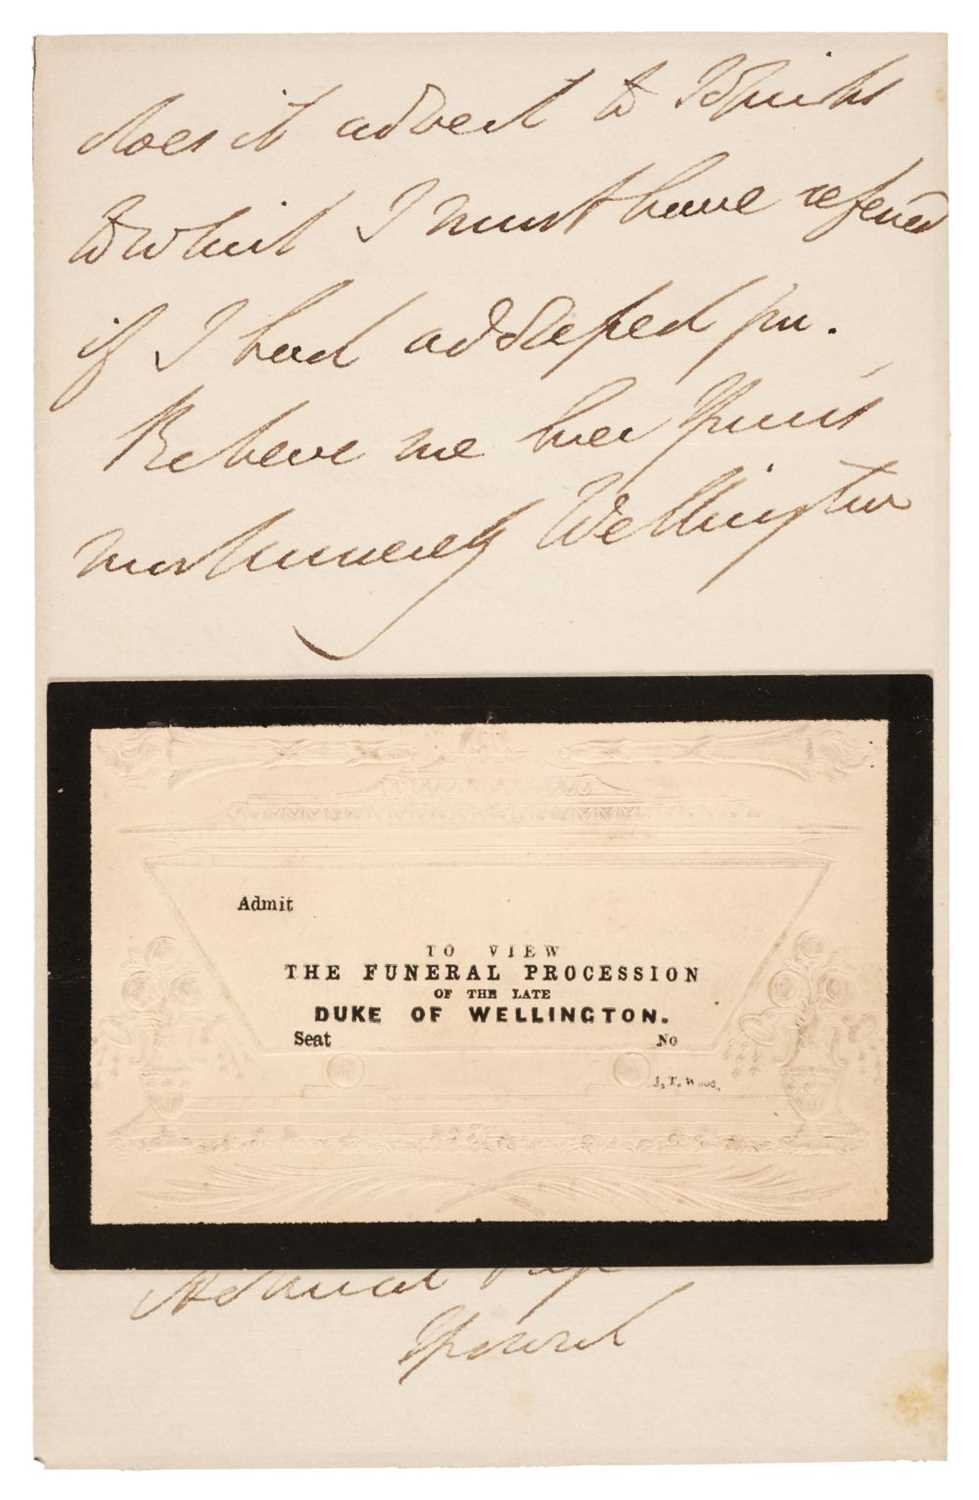 does it advert to Topicks
to which I must have referred
if I had addressed you.
Believe me Ever Yours
most sincerely Wellington
Admit
TO VIEW
THE FUNERAL PROCESSION
OF THE LATE
DUKE OF WELLINGTON.
Seat No
J. T. Wood.
Admiral Page
Ipswich